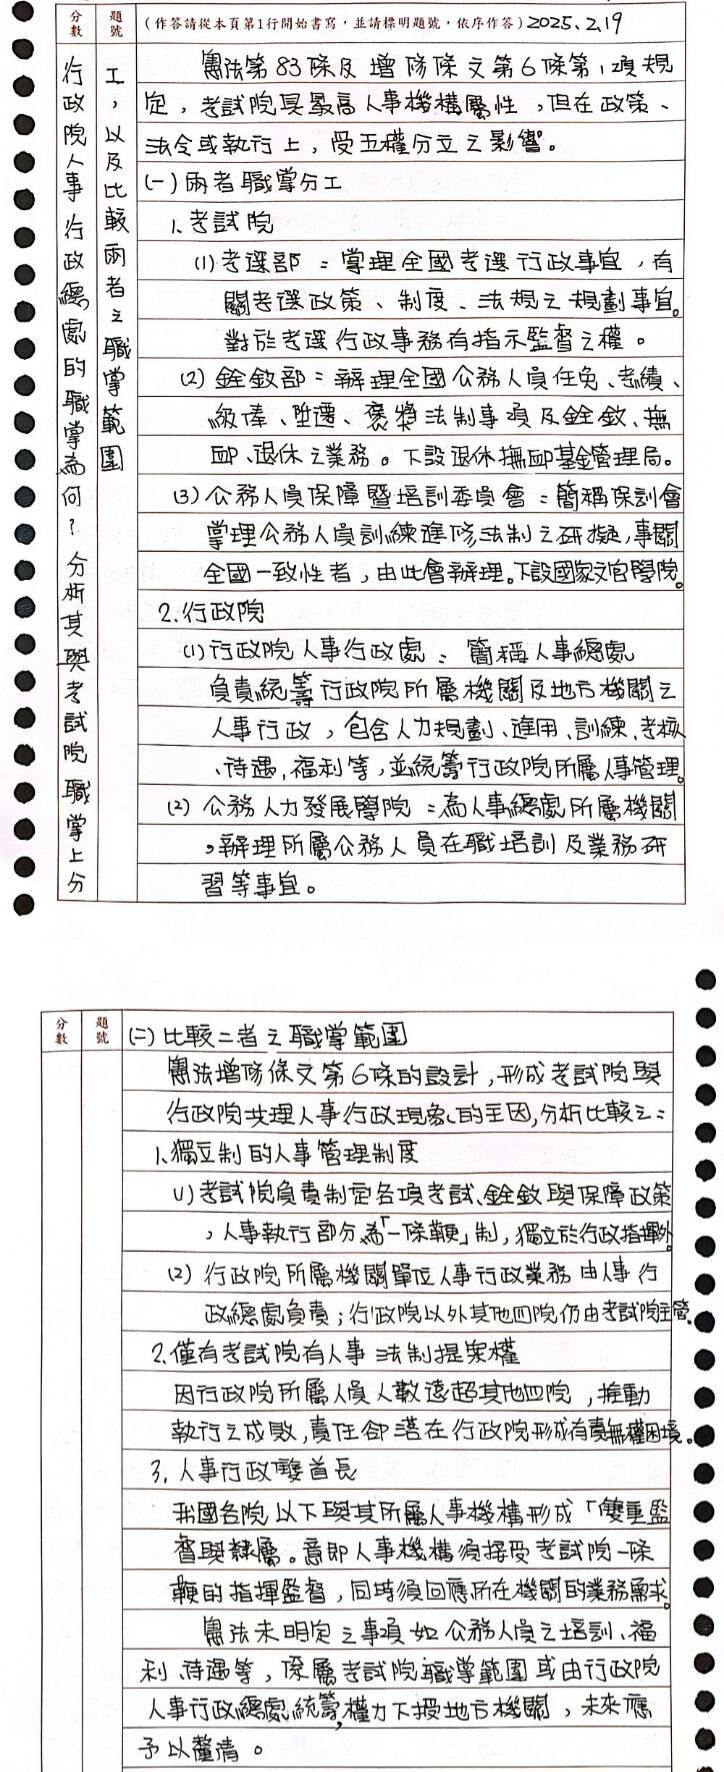 分數
題號
(作答請從本頁第1行開始書寫,並請標明題號,依序作答) 2025.2.19
行政院人事行政總處的職掌為何?分析其與考試院職掌上分
工,以及比較兩者之職掌範圍
憲法第83條及增修條文第6條第1項規
定,考試院具最高人事機構屬性,但在政策、
法令或執行上,受五權分立之影響。
(一)兩者職掌分工
1、考試院
(1)考選部:掌理全國考選行政事宜,有
關考選政策、制度、法規之規劃事宜。
對於考選行政事務有指示監督之權。
(2)銓敘部:辦理全國公務人員任免、考績、
級俸、陞遷、褒獎法制事項及銓敘、撫
卹、退休之業務。下設退休撫卹基金管理局。
(3)公務人員保障暨培訓委員會:簡稱保訓會
掌理公務人員訓練進修法制之研擬,事關
全國一致性者,由此會辦理。下設國家文官學院。
2.行政院
(1)行政院人事行政處:簡稱人事總處
負責統籌行政院所屬機關及地方機關之
人事行政,包含人力規劃、進用、訓練、考核
、待遇,福利等,並統籌行政院所屬人事管理。
(2)公務人力發展學院:為人事總處所屬機關
,辦理所屬公務人員在職培訓及業務研
習等事宜。
分數
題號
(二)比較二者之職掌範圍
憲法增修條文第6條的設計,形成考試院與
行政院共理人事行政現象的主因,分析比較之:
1、獨立制的人事管理制度
(1)考試院負責制定各項考試、銓敘與保障政策
,人事執行部分為「一條鞭」制,獨立於行政指揮外。
(2)行政院所屬機關單位人事行政業務由人事行
政總處負責;行政院以外其他四院仍由考試院主管。
2.僅有考試院有人事法制提案權
因行政院所屬人員人數遠超其他四院,推動
執行之成敗,責任卻落在行政院形成有責無權困境。
3.人事行政雙首長
我國各院以下與其所屬人事機構形成「雙重監
督與隸屬。意即人事機構須接受考試院一條
鞭的指揮監督,同時須回應所在機關的業務需求。
憲法未明定之事項如公務人員之培訓、福
利、待遇等,係屬考試院職掌範圍或由行政院
人事行政總處統籌,權力下授地方機關,未來應
予以釐清。